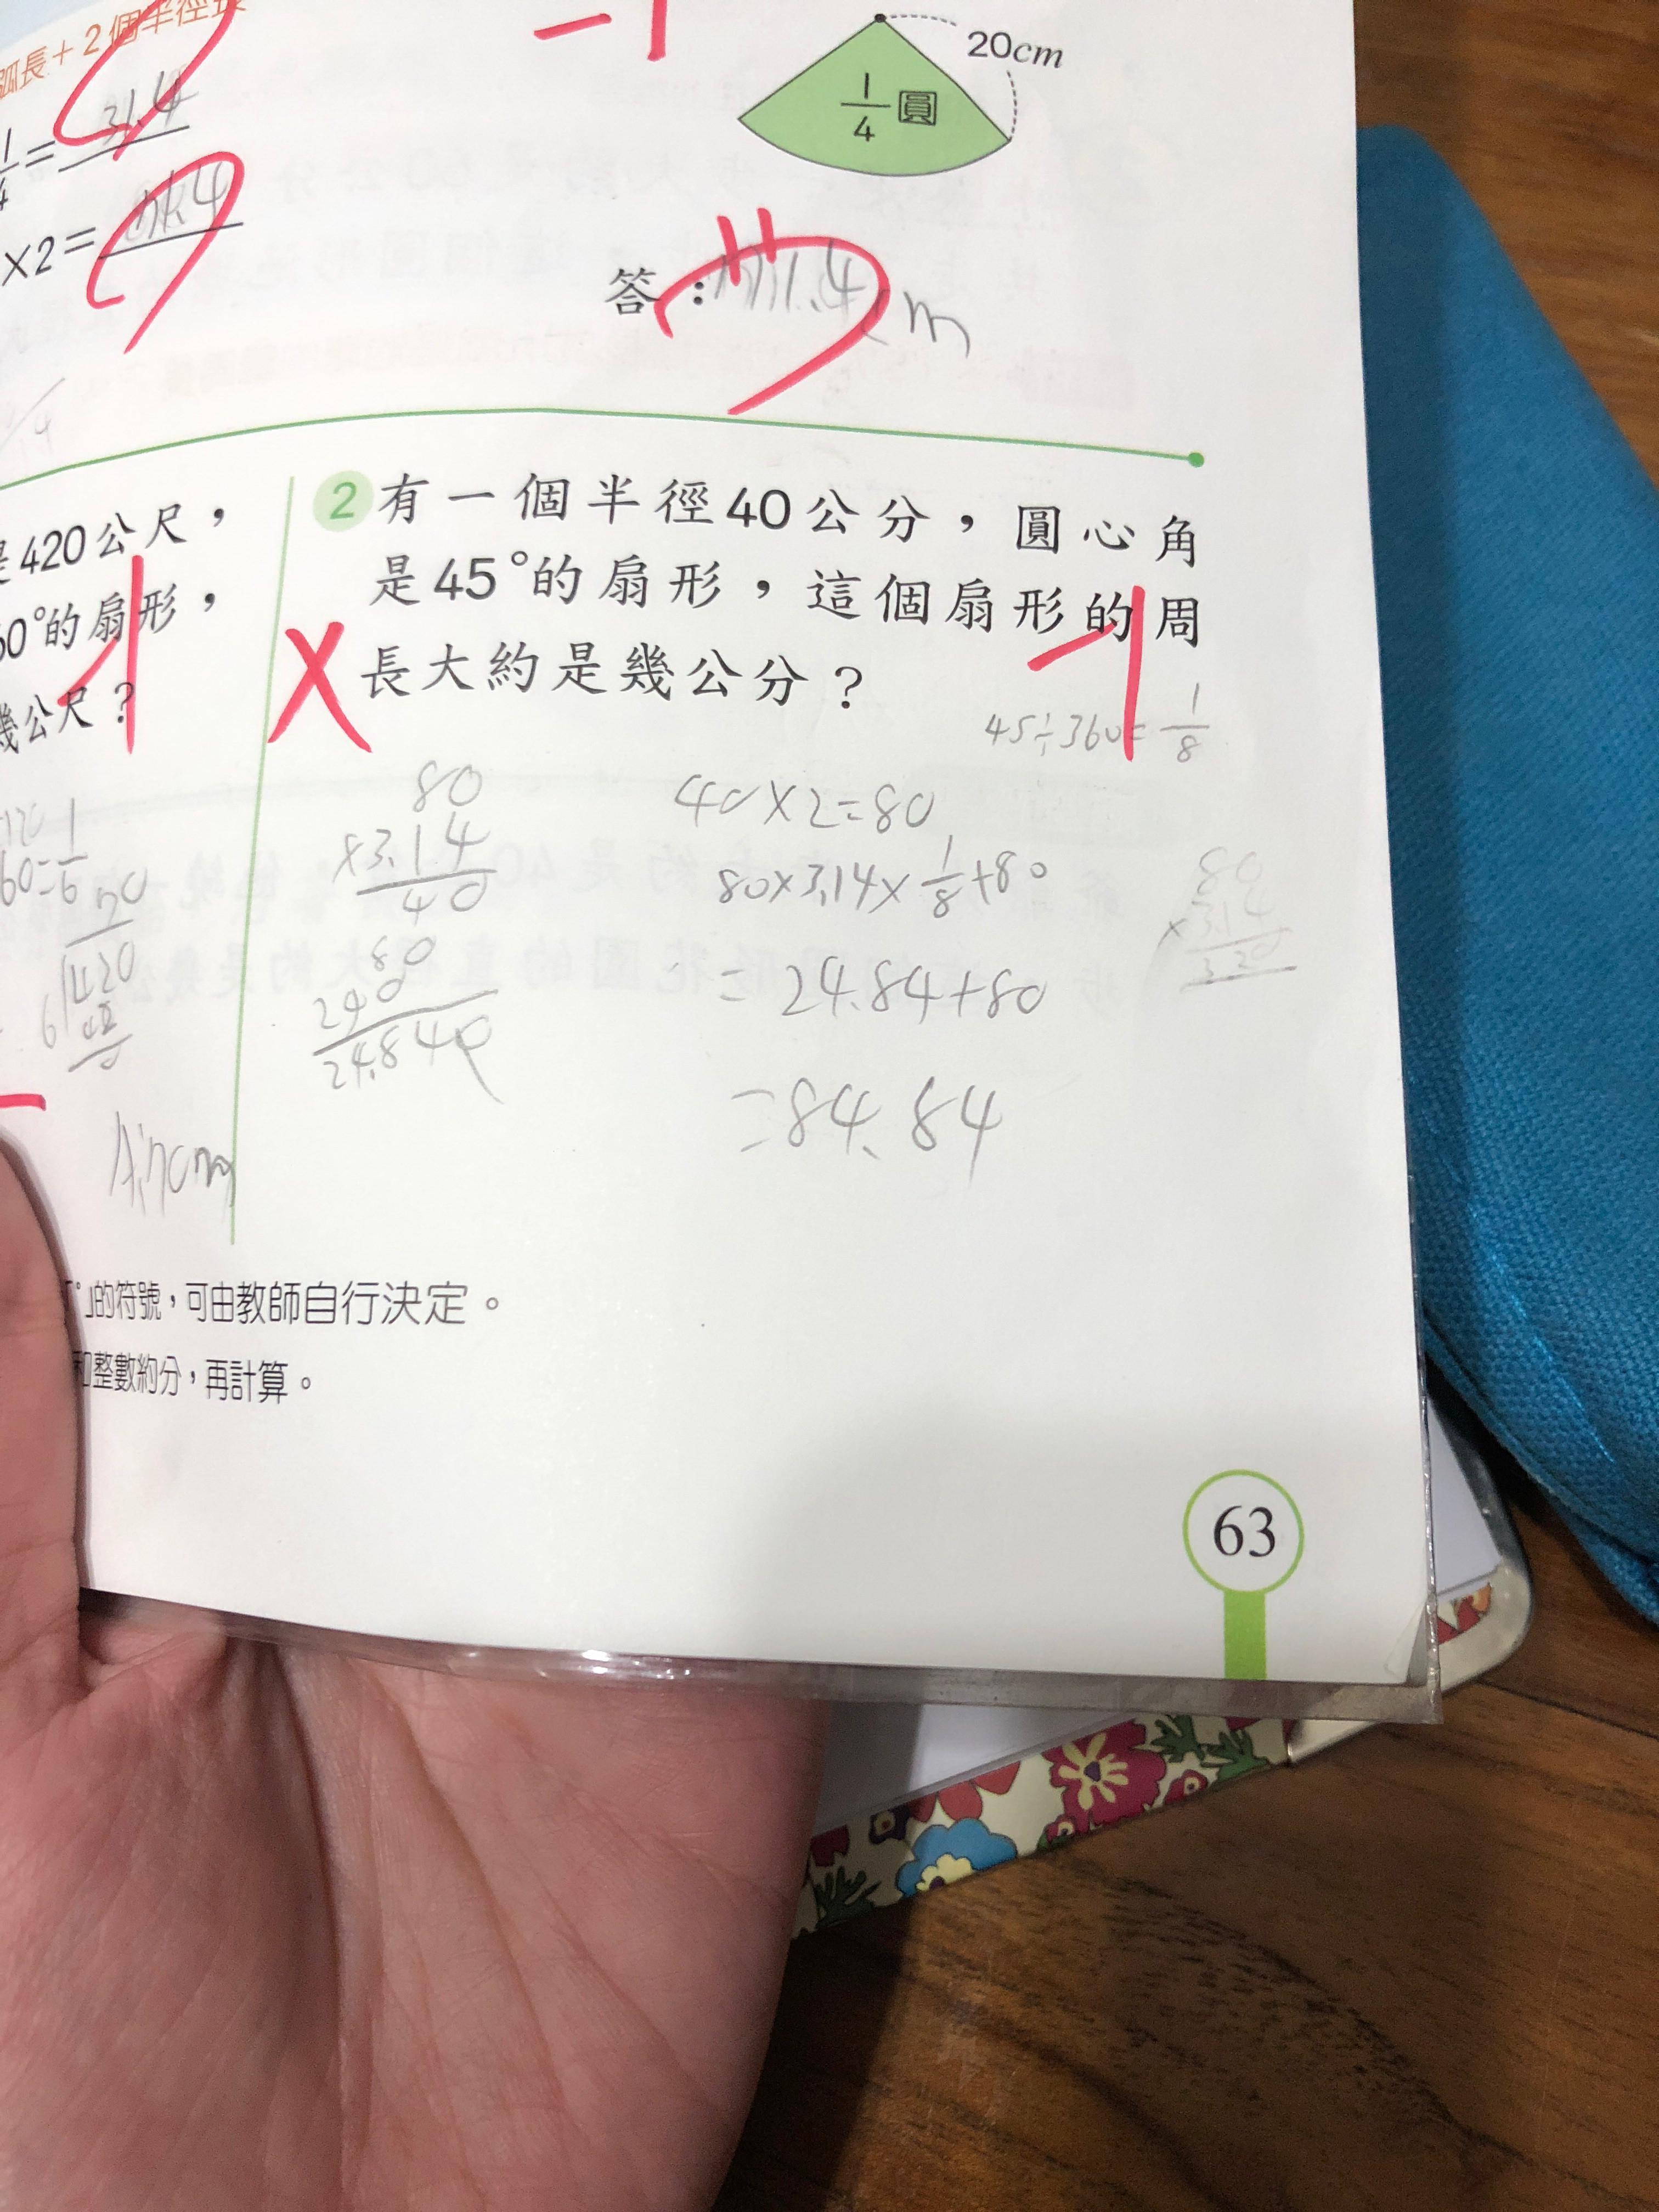 弧長+2個半徑長
1/4=31.4
×2=
20cm
1/4圓
答:111.4cm
是420公尺,
60°的扇形,
幾公尺?
2 有一個半徑40公分,圓心角
是45°的扇形,這個扇形的周
長大約是幾公分?
-1
45÷360=1/8
80
×3.14
40
80
240
24.840
40×2=80
80×3.14×1/8+80
=24.84+80
=84.84
80
×3.14
320
60=1/6
70
6 420
42
0
」的符號,可由教師自行決定。
和整數約分,再計算。
63